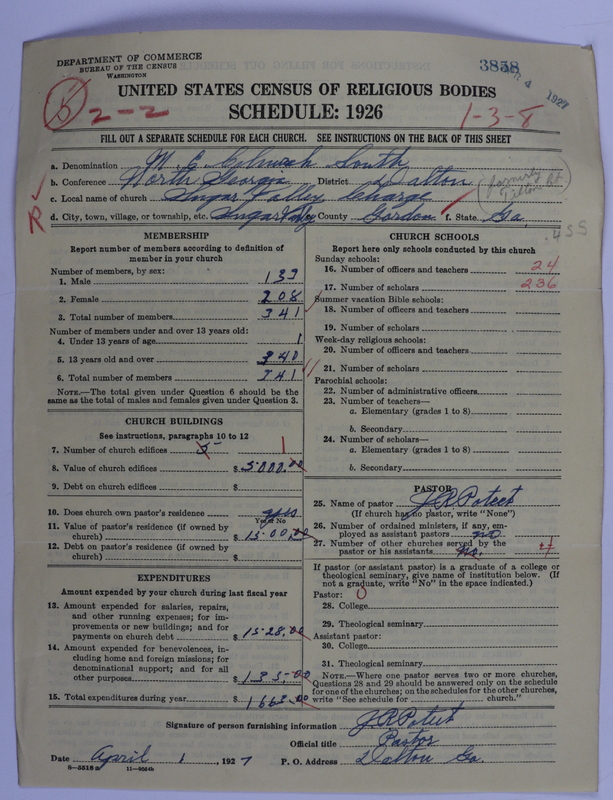 DEPARTMENT OF COMMERCE
BUREAU OF THE CENSUS
WASHINGTON
3858
4 1927
5
2-2
UNITED STATES CENSUS OF RELIGIOUS BODIES
SCHEDULE: 1926
1-3-8
FILL OUT A SEPARATE SCHEDULE FOR EACH CHURCH. SEE INSTRUCTIONS ON THE BACK OF THIS SHEET
a. Denomination M. E. Church South
b. Conference North Georgia District Dalton
formerly at Tilton
c. Local name of church Sugar Valley Charge
d. City, town, village, or township, etc. Sugar Valley County Gordon f. State Ga.
455
MEMBERSHIP
Report number of members according to definition of
member in your church
Number of members, by sex:
1. Male 139
2. Female 208
3. Total number of members 341
Number of members under and over 13 years old:
4. Under 13 years of age 1
5. 13 years old and over 340
6. Total number of members 341
NOTE.—The total given under Question 6 should be
same as the total of males and females given under Question 3.
CHURCH BUILDINGS
See instructions, paragraphs 10 to 12
7. Number of church edifices 5 1
8. Value of church edifices $ 5000.00
9. Debt on church edifices $
10. Does church own pastor's residence yes
Yes or No
11. Value of pastor's residence (if owned by
church) $ 1500.00
12. Debt on pastor's residence (if owned by
church) $
EXPENDITURES
Amount expended by your church during last fiscal year
13. Amount expended for salaries, repairs,
and other running expenses; for im-
provements or new buildings; and for
payments on church debt $ 1528.00
14. Amount expended for benevolences, in-
cluding home and foreign missions; for
denominational support; and for all
other purposes $ 135.00
15. Total expenditures during year $ 1663.00
CHURCH SCHOOLS
Report here only schools conducted by this church
Sunday schools:
16. Number of officers and teachers 24
17. Number of scholars 236
Summer vacation Bible schools:
18. Number of officers and teachers
19. Number of scholars
Week-day religious schools:
20. Number of officers and teachers
21. Number of scholars
Parochial schools:
22. Number of administrative officers
23. Number of teachers—
a. Elementary (grades 1 to 8)
b. Secondary
24. Number of scholars—
a. Elementary (grades 1 to 8)
b. Secondary
PASTOR
25. Name of pastor J R Poteet
(If church has no pastor, write "None")
26. Number of ordained ministers, if any, em-
ployed as assistant pastors no
27. Number of other churches served by the
pastor or his assistants no. +4
If pastor (or assistant pastor) is a graduate of a college or
theological seminary, give name of institution below. (If
not a graduate, write "No" in the space indicated.)
Pastor: 0
28. College
29. Theological seminary
Assistant pastor:
30. College
31. Theological seminary
NOTE.—Where one pastor serves two or more churches,
Questions 28 and 29 should be answered only on the schedule
for one of the churches; on the schedules for the other churches,
write "See schedule for church."
Signature of person furnishing information J. R Poteet
Official title Pastor
Date April 1, 1927 P. O. Address Dalton Ga.
8—5518 a 11—9054b